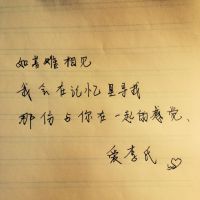 如若难相见
我会在记忆里寻找
那份与你在一起的感觉、
爱李氏